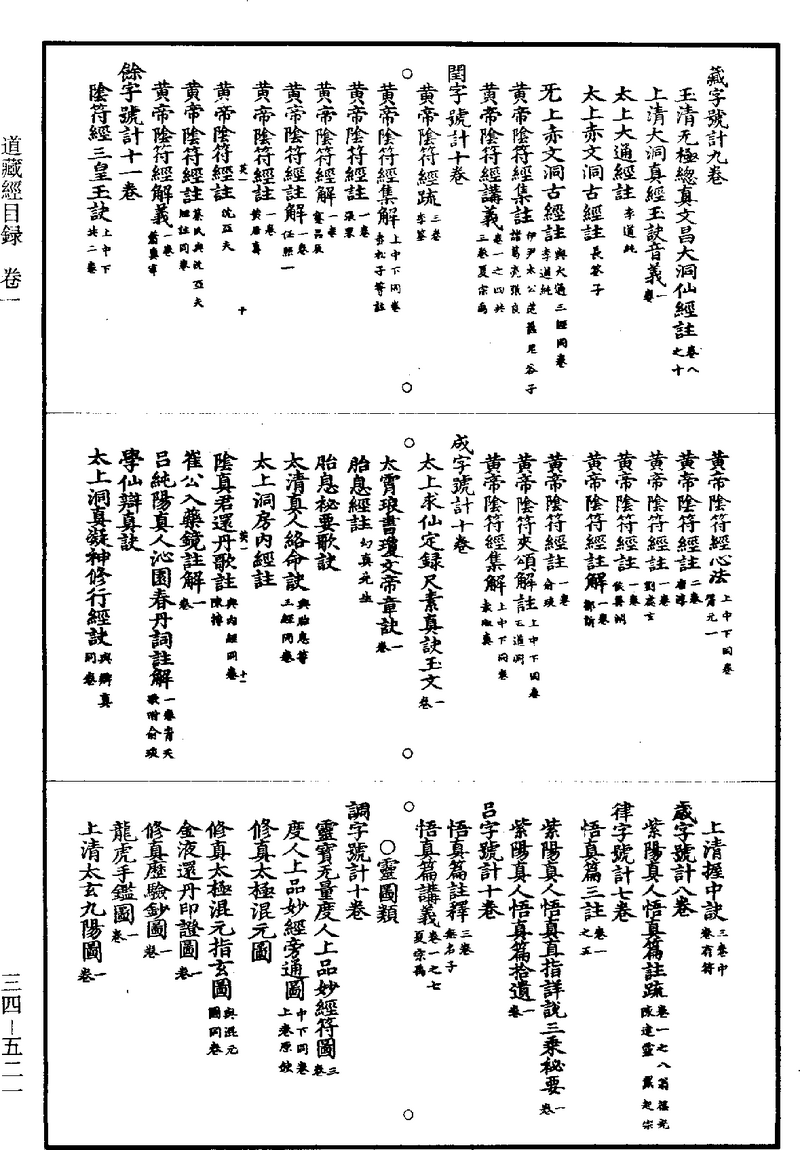 藏字號計九卷
玉清无極總真文昌大洞仙經註 卷八之十
上清大洞真經玉訣音義 一卷
太上大通經註 李道純
太上赤文洞古經註 長筌子
无上赤文洞古經註 李道純 與大通三經同卷
黃帝陰符經集註 伊尹太公范蠡鬼谷子諸葛亮張良
黃帝陰符經講義 卷一之四共三卷夏宗禹
閏字號計十卷
黃帝陰符經疏 三卷李筌
黃帝陰符經集解 上中下同卷赤松子等註
黃帝陰符經註 一卷張果
黃帝陰符經解 一卷蹇昌辰
黃帝陰符經註解 一卷任照一
黃帝陰符經註 一卷黃居真
黃帝陰符經註 沈亞夫
黃帝陰符經註 蔡氏與沈亞夫註同卷
黃帝陰符經解義 一卷蕭真宰
餘字號計十一卷
陰符經三皇玉訣 上中下共二卷
黃帝陰符經心法 上中下同卷胥元一
黃帝陰符經註 二卷唐淳
黃帝陰符經註 一卷劉處玄
黃帝陰符經註 一卷侯善淵
黃帝陰符經註解 一卷鄒訢
黃帝陰符經註 一卷俞琰
黃帝陰符夾頌解註 上中下同卷王道淵
黃帝陰符經集解 上中下同卷袁淑真
成字號計十卷
太上求仙定録尺素真訣玉文 一卷
太霄琅書瓊文帝章訣 一卷
胎息經註 幻真先生
胎息秘要歌訣
太清真人絡命訣 與胎息等三經同卷
太上洞房內經註
陰真君還丹歌註 與內經同卷陳摶
崔公入藥鏡註解 一卷
呂純陽真人沁園春丹詞註解 一卷青天歌附俞琰
學仙辯真訣
太上洞真凝神修行經訣 與辯真同卷
上清握中訣 三卷中卷有符
歲字號計八卷
紫陽真人悟真篇註疏 卷一之八翁葆光陳達靈戴起宗
律字號計七卷
悟真篇三註 卷一之五
紫陽真人悟真直指詳說三乘秘要 一卷
紫陽真人悟真篇拾遺 一卷
呂字號計十卷
悟真篇註釋 三卷無名子
悟真篇講義 卷一之七夏宗禹
○靈圖類
調字號計十卷
靈寶无量度人上品妙經符圖 三卷
度人上品妙經旁通圖 中下同卷上卷原缺
修真太極混元圖
修真太極混元指玄圖 與混元圖同卷
金液還丹印證圖 一卷
修真歷驗鈔圖 一卷
龍虎手鑑圖 一卷
上清太玄九陽圖 一卷
道藏經目録 卷一
三四—五二一